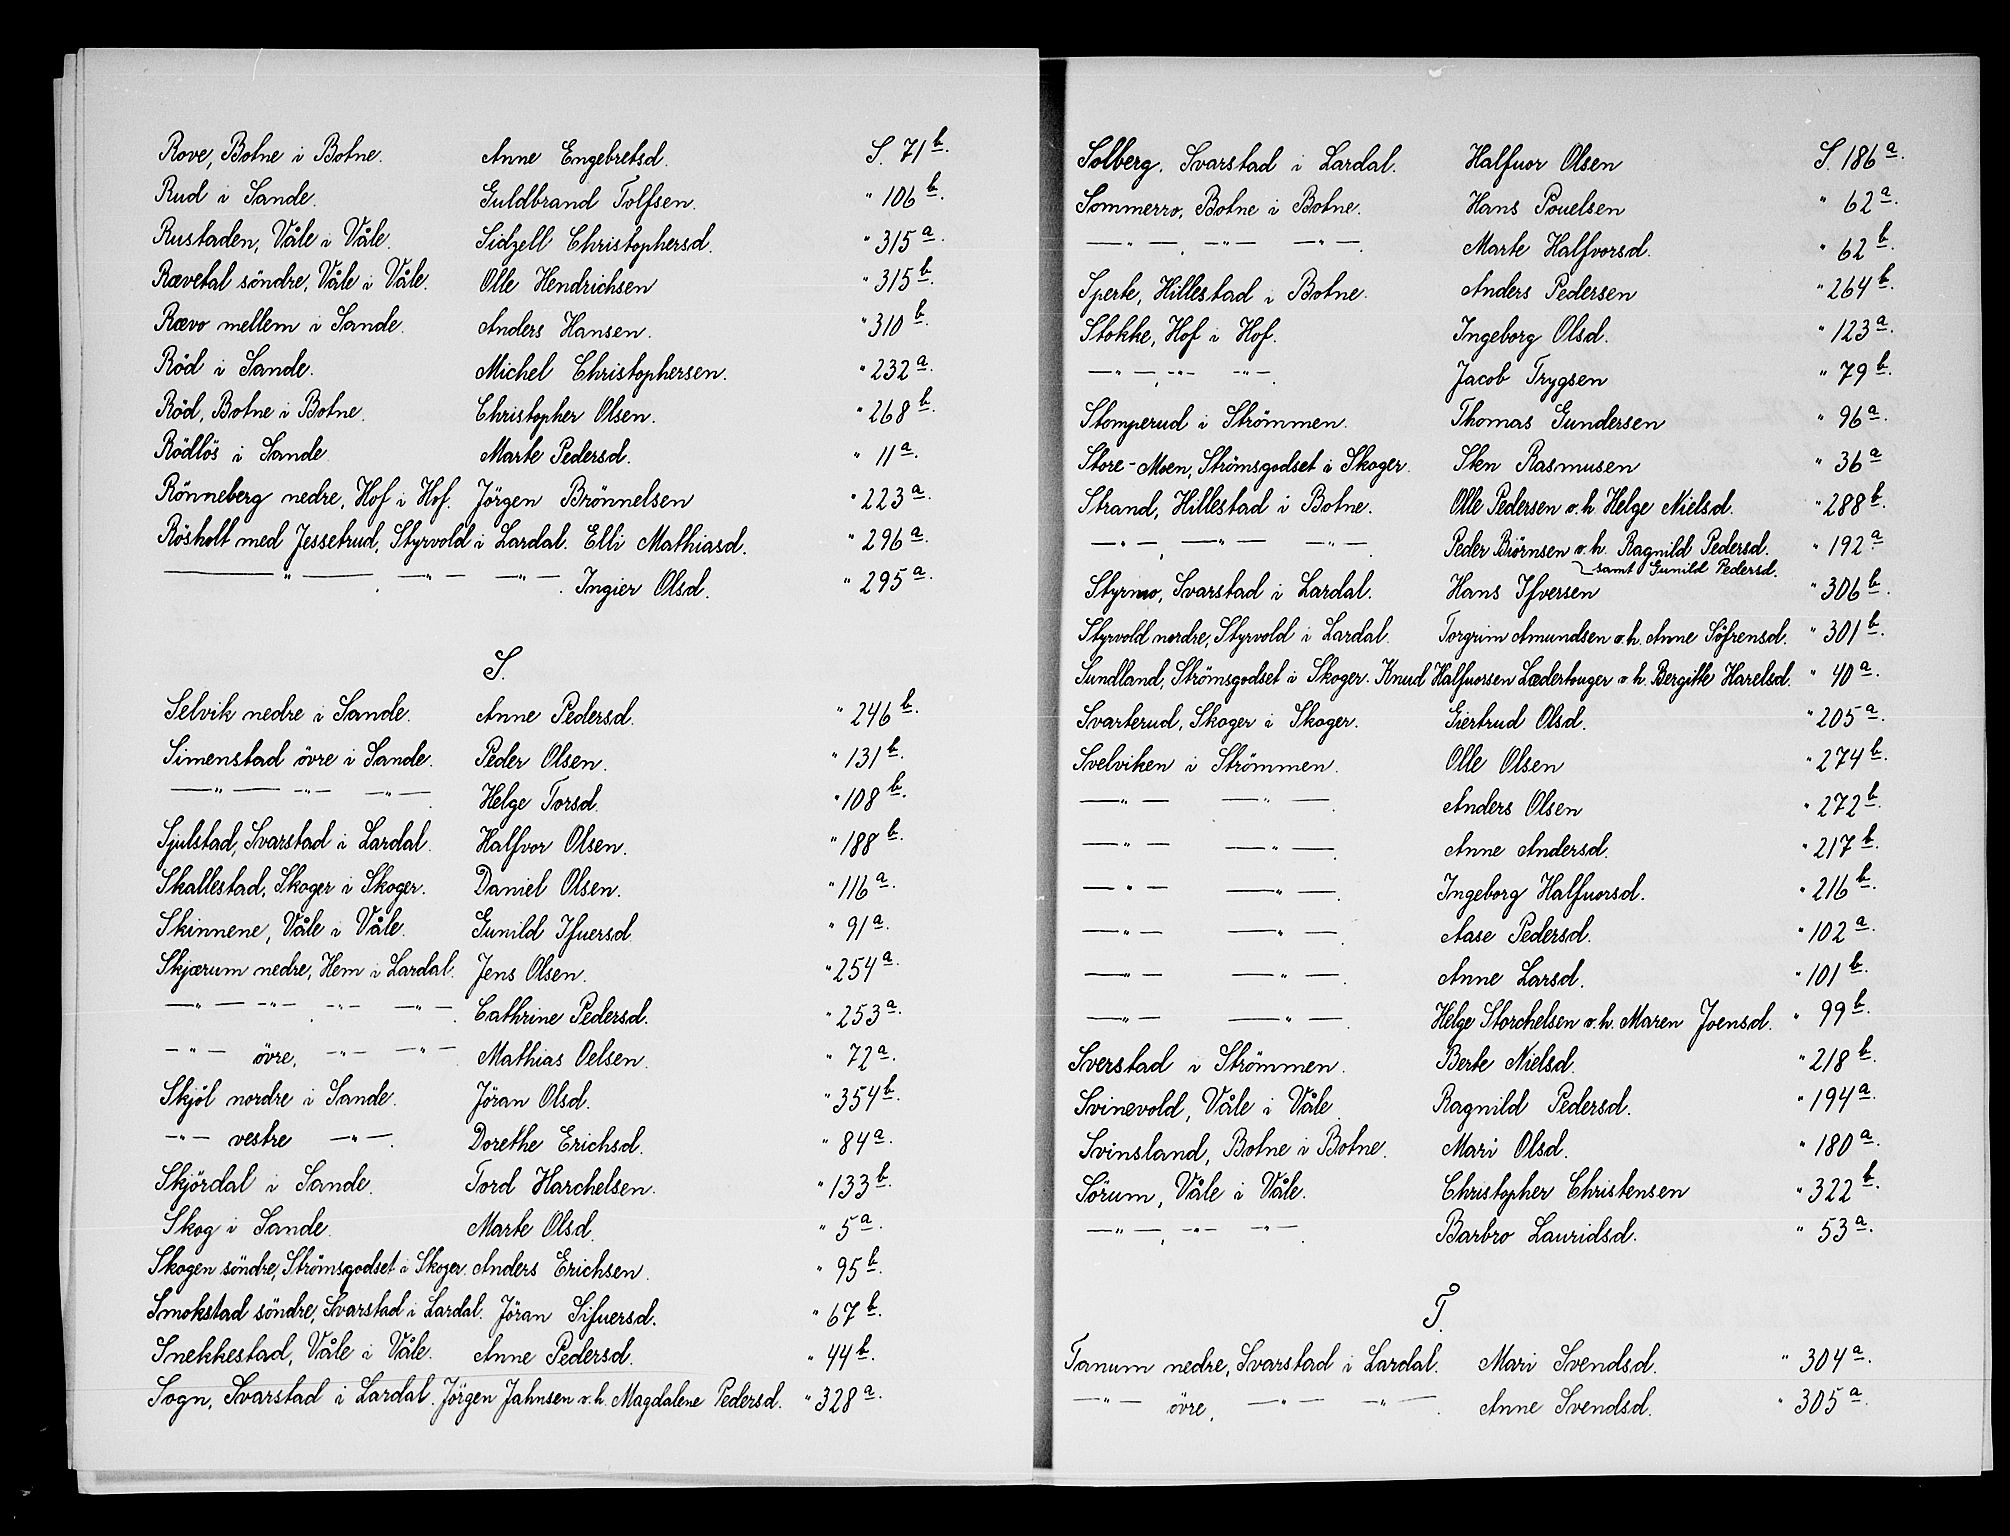 Rove, Botne i Botne. Anne Engebretsd. S. 71 b.
Rud i Sande. Guldbrand Tolfsen. " 106 b.
Rustaden, Våle i Våle. Sidzell Christophersd. " 315 a.
Rævetal söndre, Våle i Våle. Olle Hendrichsen " 315 b.
Rævo mellem i Sande. Anders Hansen. " 310 b.
Röd i Sande. Michel Christophersen. " 232 a.
Röd, Botne i Botne. Christopher Olsen. " 268 b.
Rödlös i Sande Marte Pedersd. " 11 a.
Rönneberg nedre, Hof i Hof. Jörgen Brönnelsen " 223 a.
Rösholt med Jessetrud, Styrvold i Lardal. Elli Mathiasd. " 296 a.
— " — — " — — " — . Ingier Olsd. " 295 a.
S.
Selvik nedre i Sande. Anne Pedersd. " 246 b.
Simenstad övre i Sande. Peder Olsen. " 131 b.
— " — — " — — " — . Helge Torsd. " 108 b.
Sjulstad, Svarstad i Lardal. Halfvor Olsen. " 188 b.
Skallestad, Skoger i Skoger. Daniel Olsen. " 116 a.
Skinnene, Våle i Våle. Gunild Ifuersd. " 91 a.
Skjærum nedre, Hem i Lardal. Jens Olsen. " 254 a.
— " — — " — — " — — " — . Cathrine Pedersd. " 253 a.
— " — övre, — " — — " — . Mathias Oelsen. " 72 a.
Skjöl nordre i Sande. Jöran Olsd. " 354 b.
— " — vestre — " — . Dorethe Erichsd. " 84 a.
Skjördal i Sande. Tord Harchelsen. " 133 b.
Skog i Sande. Marte Olsd. " 5 a.
Skogen söndre, Strömsgodset i Skoger. Anders Erichsen. " 95 b.
Smokstad söndre, Svarstad i Lardal. Jöran Sifuersd. " 67 b.
Snekkestad, Våle i Våle. Anne Pedersd. " 44 b.
Sogn, Svarstad i Lardal. Jörgen Jahnsen o.h. Magdalene Pedersd. " 328 a.
Solberg, Svarstad i Lardal. Halfuor Olsen S. 186 a.
Sommerro, Botne i Botne. Hans Pouelsen " 62 a.
— " — . — " — — " — . Marte Halfvorsd. " 62 b.
Sperte, Hillestad i Botne. Anders Pedersen " 264 b.
Stokke, Hof i Hof. Ingeborg Olsd. " 123 a.
— " — , — " — — " — . Jacob Trygsen " 79 b.
Stomperud i Strömmen. Thomas Gundersen " 96 a.
Store-Moen, Strömsgodset i Skoger. Sten Rasmusen " 36 a
Strand, Hillestad i Botne. Olle Pedersen o.h. Helge Nielsd. " 288 b.
— " — , — " — — " — . Peder Biörnsen o.h. Ragnild Pedersd. " 192 a.
samt Gunild Pedersd.
Styrmo, Svarstad i Lardal. Hans Ifversen " 306 b.
Styrvold nordre, Styrvold i Lardal. Torgrim Amundsen o.h. Anne Söfrensd. " 301 b.
Sundland, Strömsgodset i Skoger. Knud Halfuorsen Lædertouger o.h. Bergitte Harelsd. " 40 a.
Svarterud, Skoger i Skoger. Giertrud Olsd. " 205 a.
Svelviken i Strömmen. Olle Olsen " 274 b.
— " — — " — . Anders Olsen " 272 b.
— " — — " — . Anne Andersd. " 217 b.
— " — — " — . Ingeborg Halfuorsd. " 216 b.
— " — — " — . Aase Pedersd. " 102 a.
— " — — " — . Anne Larsd. " 101 b.
— " — — " — . Helge Storchelsen o.h. Maren Joensd. " 99 b.
Sverstad i Strömmen. Berte Nielsd. " 218 b.
Svinevold, Våle i Våle. Ragnild Pedersd. " 194 a.
Svinsland, Botne i Botne. Mari Olsd. " 180 a.
Sörum, Våle i Våle. Christopher Christensen " 322 b.
— " — , — " — — " — . Barbro Lauridsd. " 53 a.
T.
Tanum nedre, Svarstad i Lardal. Mari Svendsd. " 304 a.
— " — övre, — " — — " — . Anne Svendsd. " 305 a.